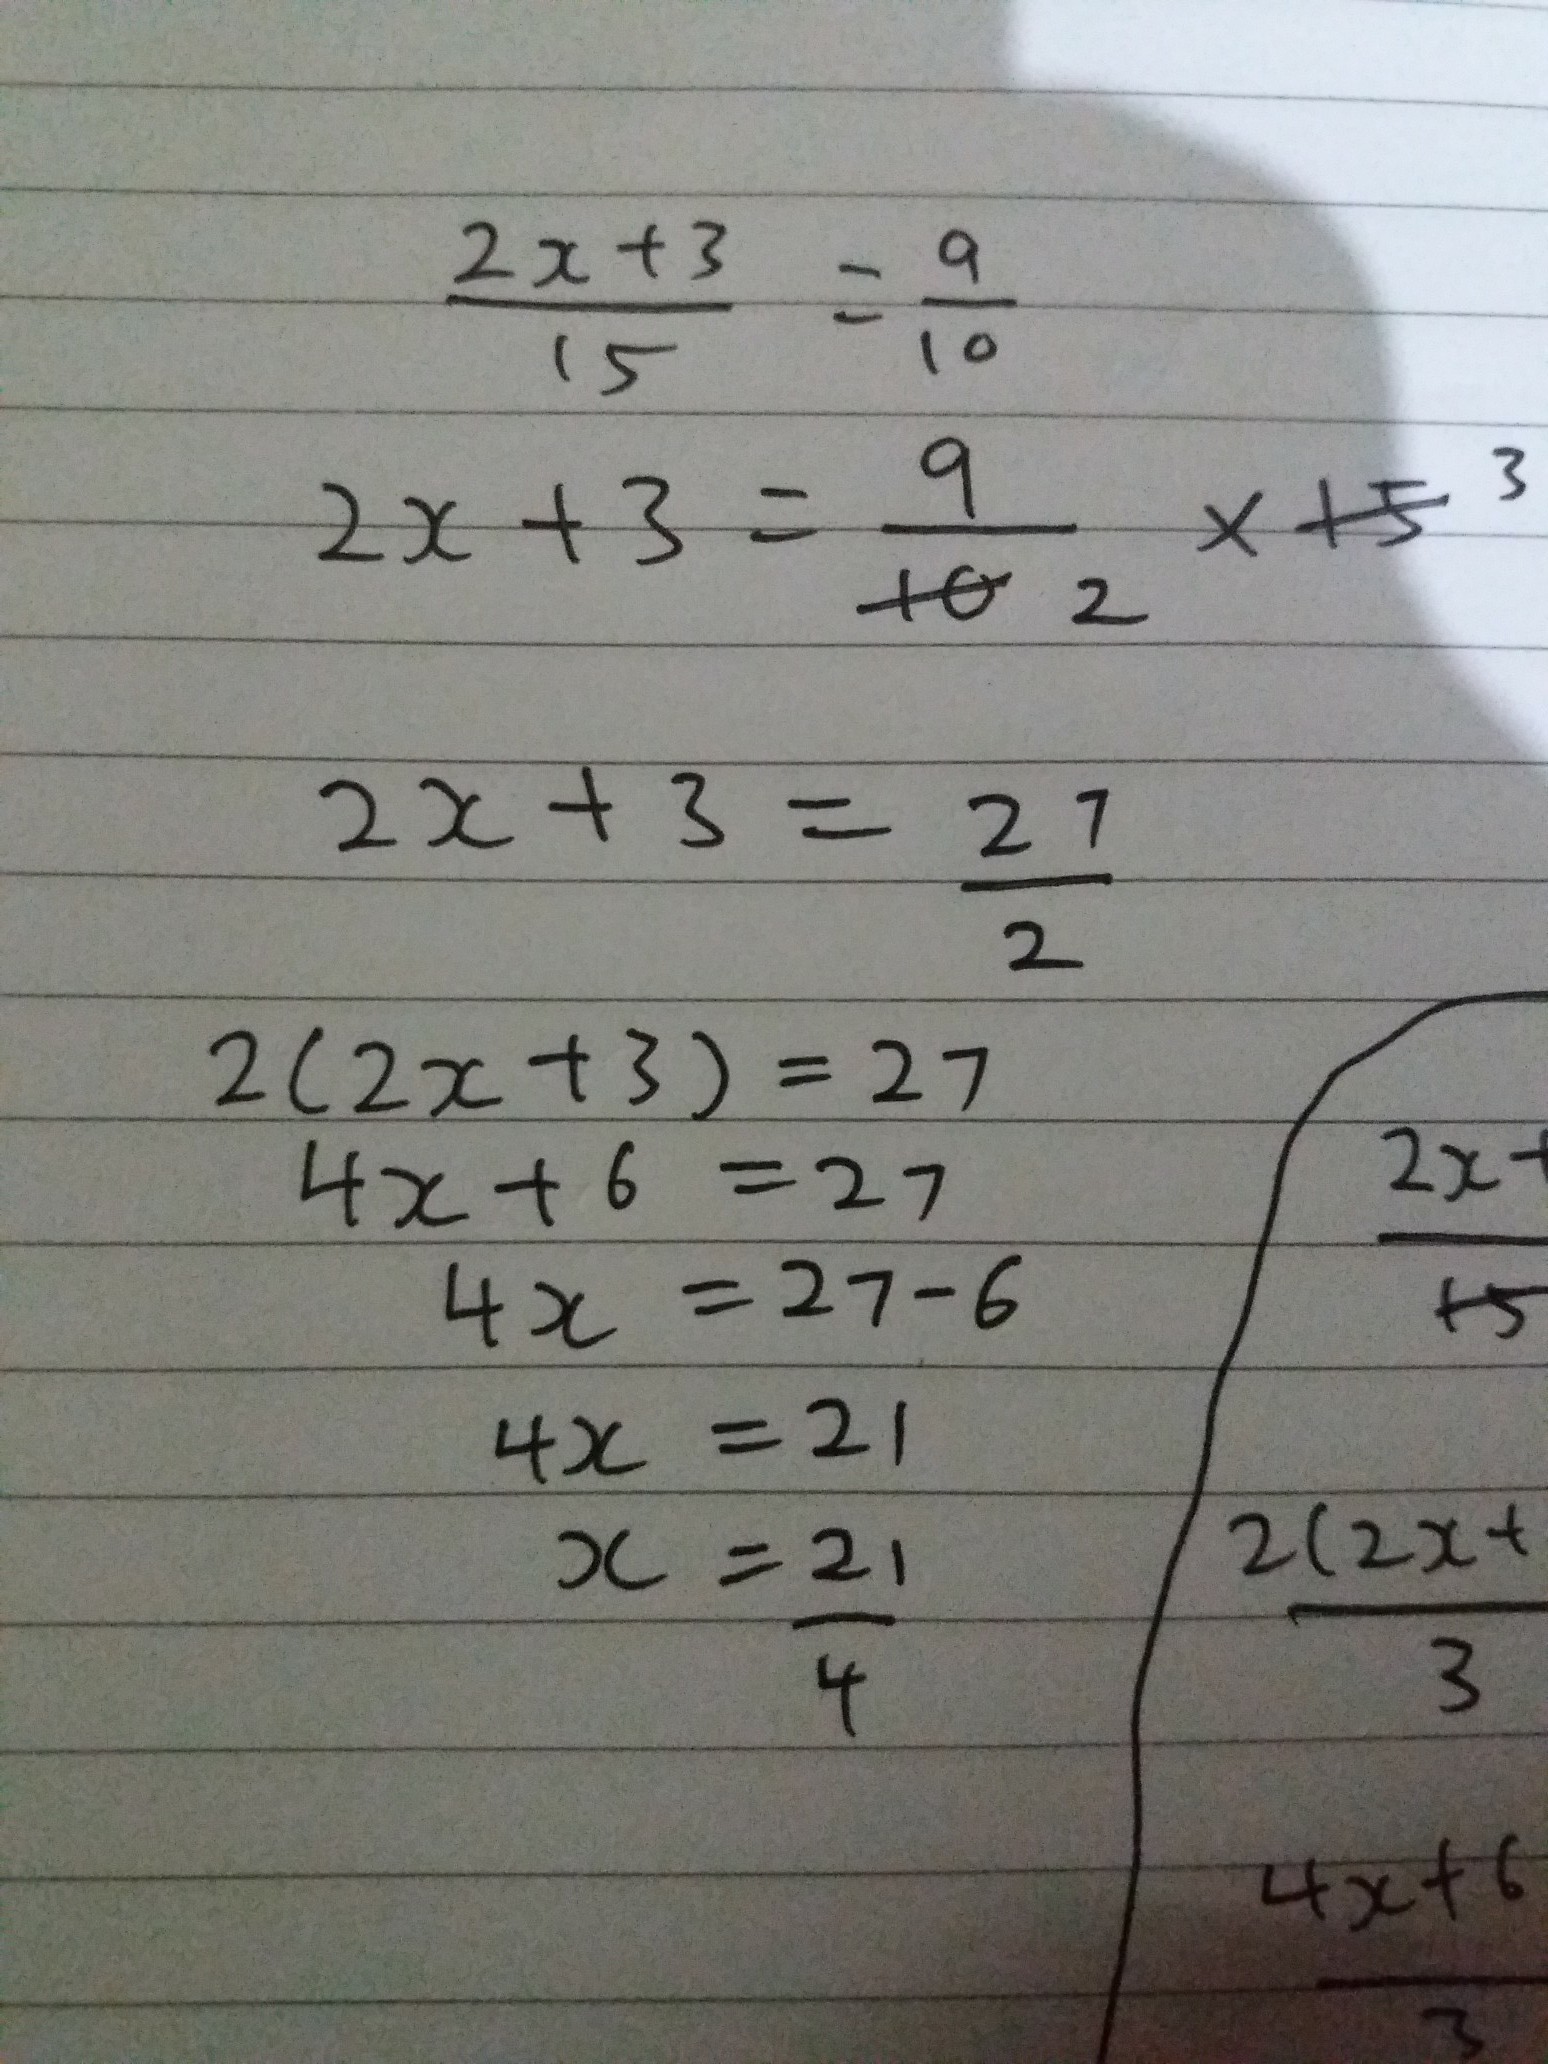 2x+3 / 15 = 9 / 10
2x + 3 = 9 / 10 2 × 15 3
2x + 3 = 27 / 2
2(2x+3) = 27
4x + 6 = 27
4x = 27-6
4x = 21
x = 21 / 4
2x+ / 15
2(2x+ / 3
4x+6 / 3